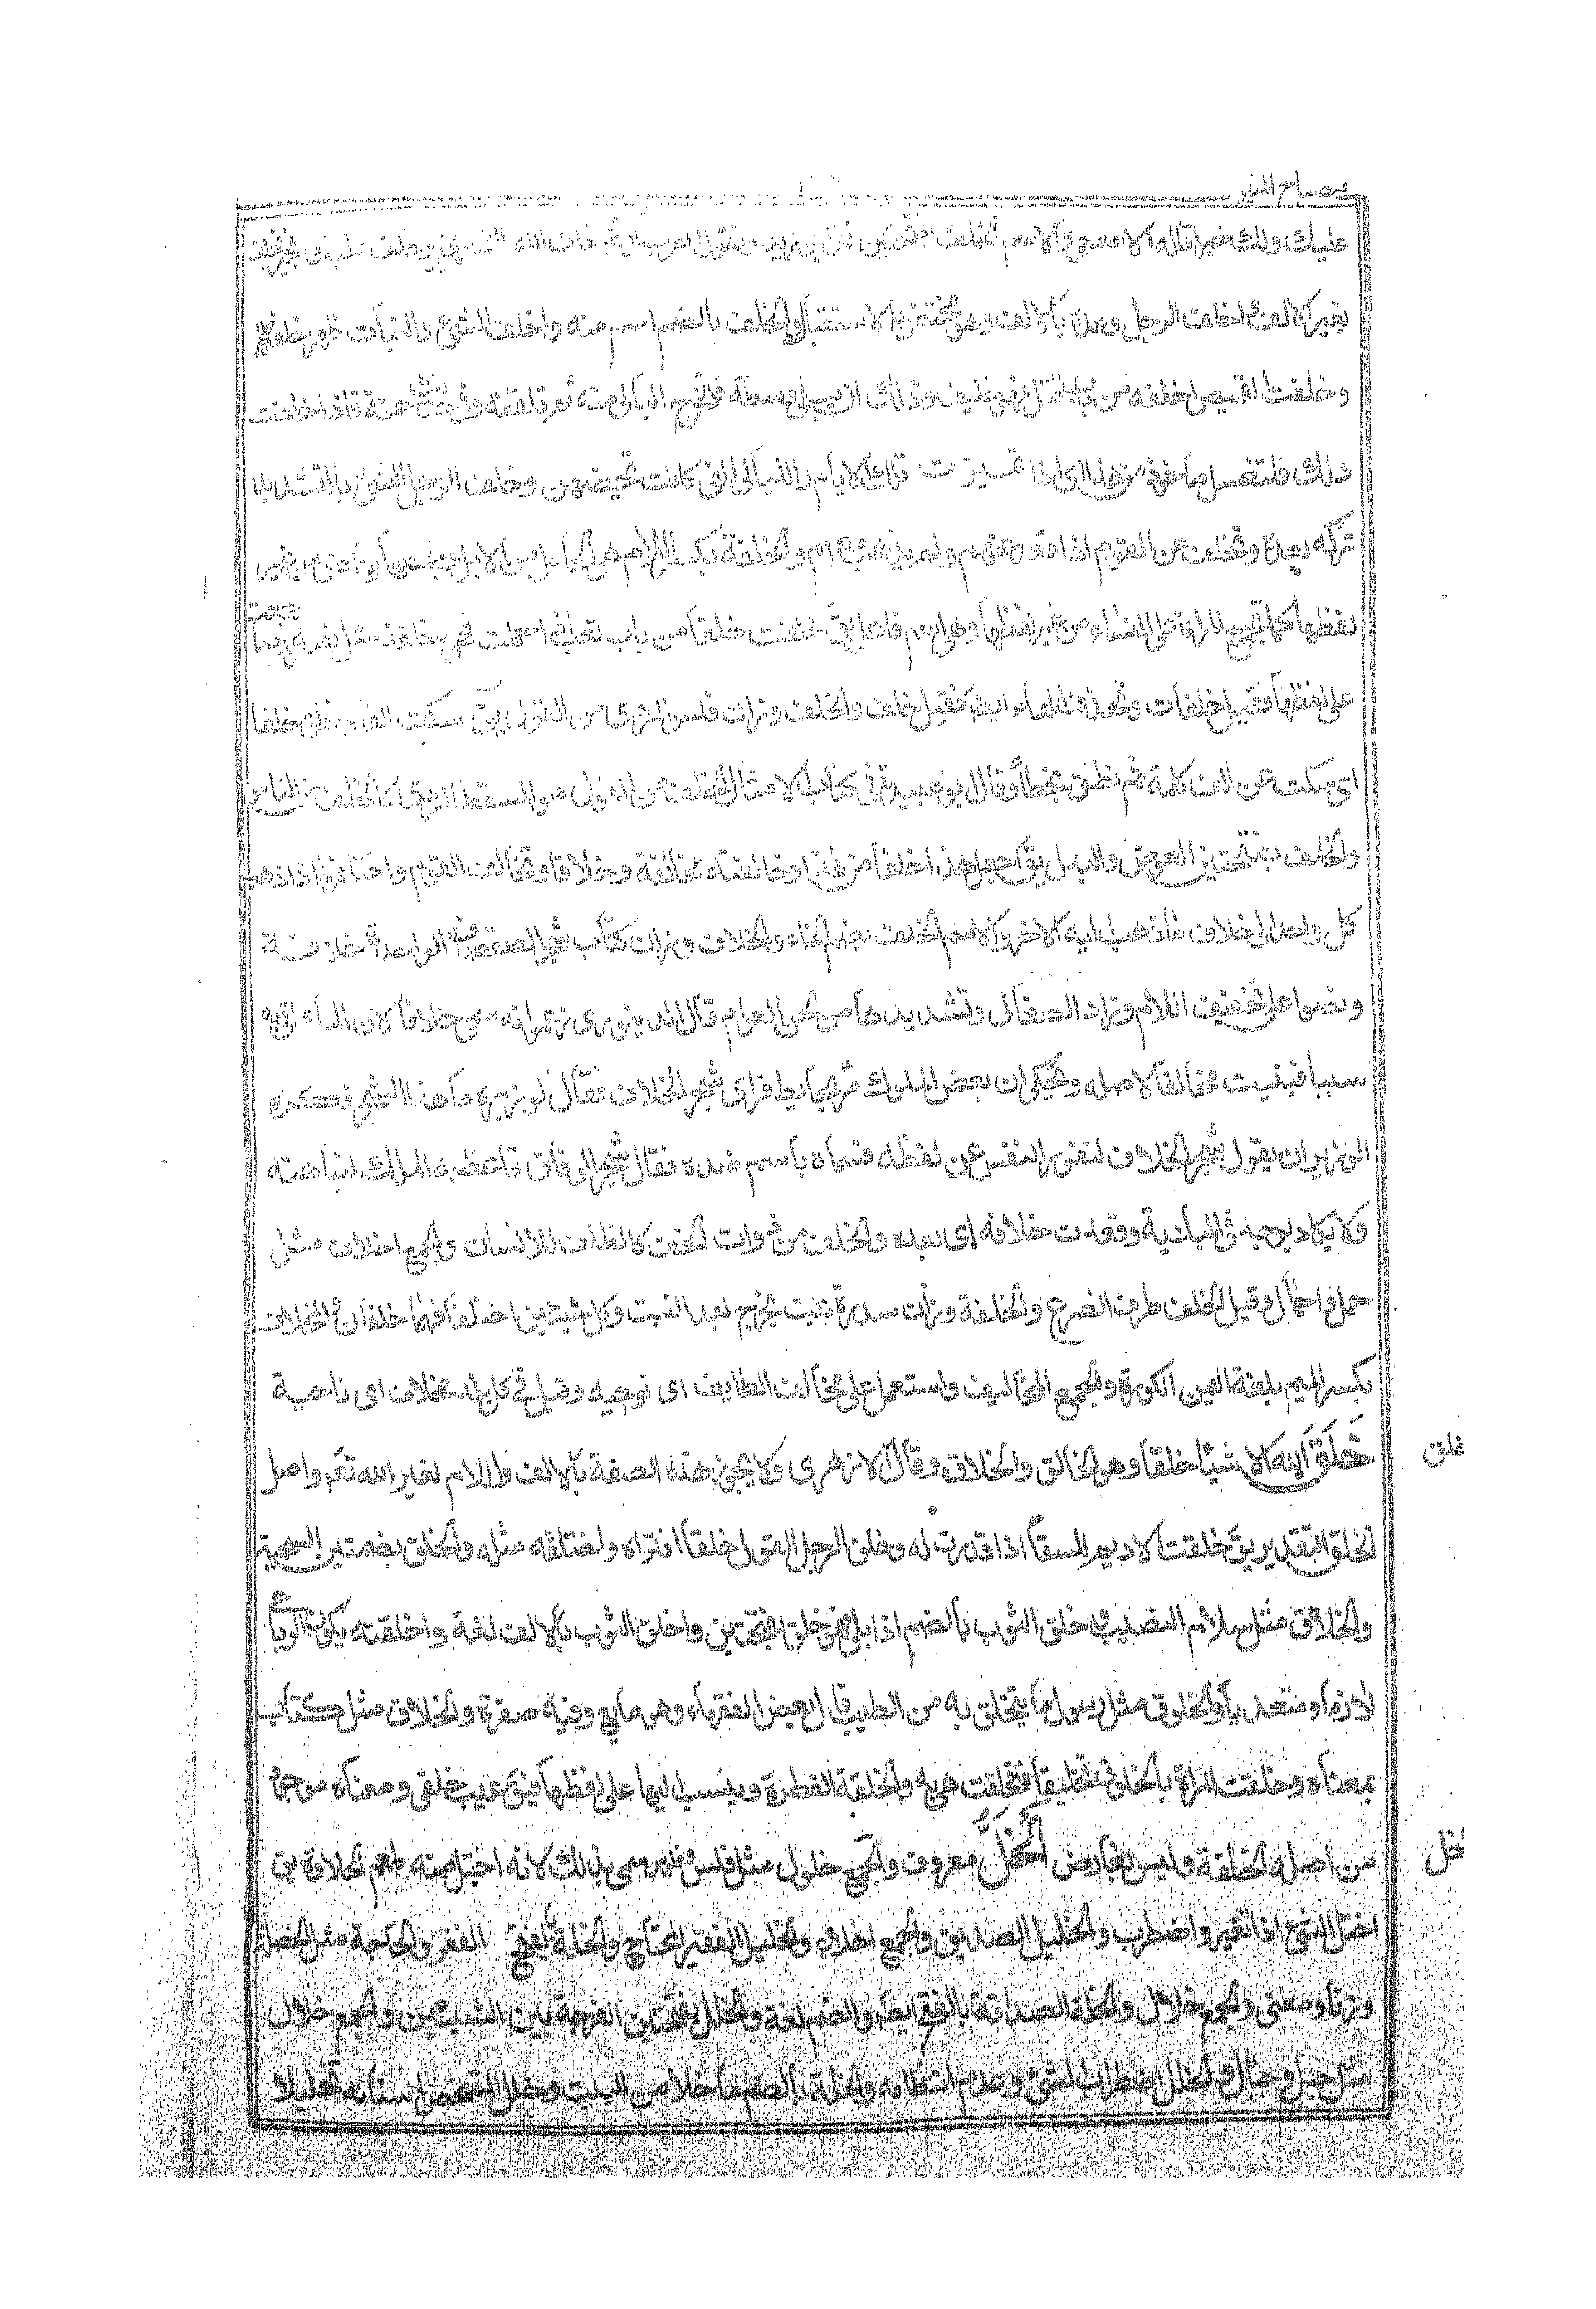 مصباح المنير
عليك ولك خيرا قاله الاصمعى والاسم الخلف بفتحتين قال ابو زيد وتقول العرب ايضا خلف الله لك بخير وخلف عليك بخير يخلف
بغير الف واخلف الرجل وعده بالالف وهو مختص بالاستقبال والخلف بالضم اسم منه واخلف الشجر والنبات ظهر خلفته
وخلفت القميص اخلفه من باب قتل فهو خليف وذلك ان يبلى وسطه فتخرج البالى منه ثم تلفقه وفى حديث حمنة فاذا خلفت
ذلك فلتغتسل ماخوذ من هذا اى اذا ميزت تلك الايام والليالى التى كانت تحيضهن وخلف الرجل الشئ بالتشديد
تركه بعده وتخلف عن القوم اذا قعد عنهم ولم يذهب معهم والخلفة بكسر اللام هى الحامل من الابل وجمعها مخاض من غير
لفظها كما تجمع المراة على النساء من غير لفظها وهى اسم فاعل يق خلفت خلفا من باب تعب اذا حملت فهى خلفة مثل تعبة وربما جمعت
على لفظها فقيل خلفات وتحذف الهاء ايضا فقيل خلف والخلف وزان فلس الردى من القول يق سكت الفا ونطق خلفا
اى سكت عن الف كلمة ثم نطق بخطأ وقال ابو عبيد فى كتاب الامثال الخلف من القول هو السقط الردى كالخلف من الناس
والخلف بفتحتين العوض والبدل يق اجعل هذا خلفا من هذا وخالفته مخالفة وخلافا وتخالف القوم واختلفوا اذا ذهب
كل واحد الى خلاف ما ذهب اليه الاخر والاسم الخلف بضم الخاء والخلاف وزان كتاب شجر الصفصاف الواحدة خلافة
ونصوا على تخفيف اللام وزاد الصغانى وتشديدها من لحن العوام قال الدينورى زعموا انه سمى خلافا لان الماء اتى به
سبيا فنبت مخالفا لاصله ويحكى ان بعض الملوك مر بحايط فراى شجر الخلاف فقال لوزيره ما هذا الشجر فكره
الوزير ان يقول شجر الخلاف لنفور النفس عن لفظه فسماه باسم ضده فقال شجر الوفاق فاعظمه الملك لنباهته
ولا يكاد يوجد فى البادية وقعدت خلافه اى بعده والخلف من ذوات الخف كالثدى للانسان والجمع اخلاف مثل
حمل واحمال وقيل الخلف طرف الضرع والخلفة وزان سدرة نبت يخرج بعد النبت وكل شيئين اختلفا فهما خلفان والمخلاف
بكسر الميم بلغة اليمن الكورة والجمع المخاليف واستعمل على مخاليف الطايف اى نواحيه وقيل فى كل بلد مخلاف اى ناحية
خلق
خَلَقَ الله الاشياء خلقا وهو الخالق والخلاق وقال الازهرى ولا يجوز هذه الصفة بالالف واللام لغير الله تعم واصل
الخلق التقدير يق خلقت الاديم للسقاء اذا قدرت له وخلق الرجل القول خلقا افتراه واختلقه مثله والخلق بضمتين السجية
والخلاق مثل سلام النصيب وخلق الثوب بالضم اذا بلى فهو خلق بفتحتين واخلق الثوب بالالف لغة واخلقته يكون الرباعى
لازما ومتعديا والخلوق مثل رسول ما يتخلق به من الطيب قال بعض الفقهاء وهو مايع وفيه صفرة والخلاق مثل كتاب
بمعناه وخلقت المراة بالخلوق تخليقا فتخلقت هى به والخلقة الفطرة وينسب اليها على لفظها فيق عيب خلقى ومعناه موجود
من اصل الخلقة وليس بعارض الخَلُّ معروف والجمع خلول مثل فلس وفلوس سمى بذلك لانه اختل منه طعم الحلاوة يق
الخل
اختل الشئ اذا تغير واضطرب والخليل الصديق والجمع اخلاء والخليل الفقير المحتاج والخلة بالفتح الفقر والحاجة مثل الخصلة
وزنا ومعنى والجمع خلال والخلة الصداقة بالفتح ايضا والضم لغة والخلل بفتحتين الفرجة بين الشيئين والجمع خلال
مثل جبل وجبال والخلل اضطراب الشئ وعدم انتظامه والخلة بالضم ما خلا من النبت وخلل الشخص اسنانه تخليلا